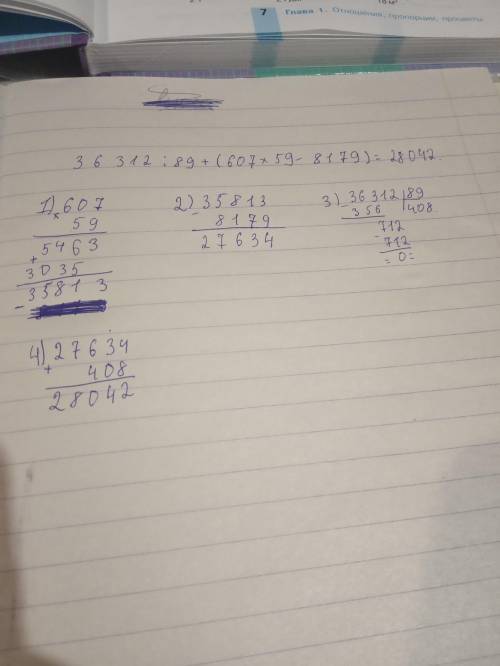 7 Глава 1. Отношения, пропорции, проценты
36 312 : 89 + (607 × 59 - 8179) = 28042.
1) 607
×
59
5463
+
3035
35813
2) 35813
-
8179
27634
3) 36312 | 89
-
356 | 408
712
-
712
= 0 =
4) 27634
+
408
28042